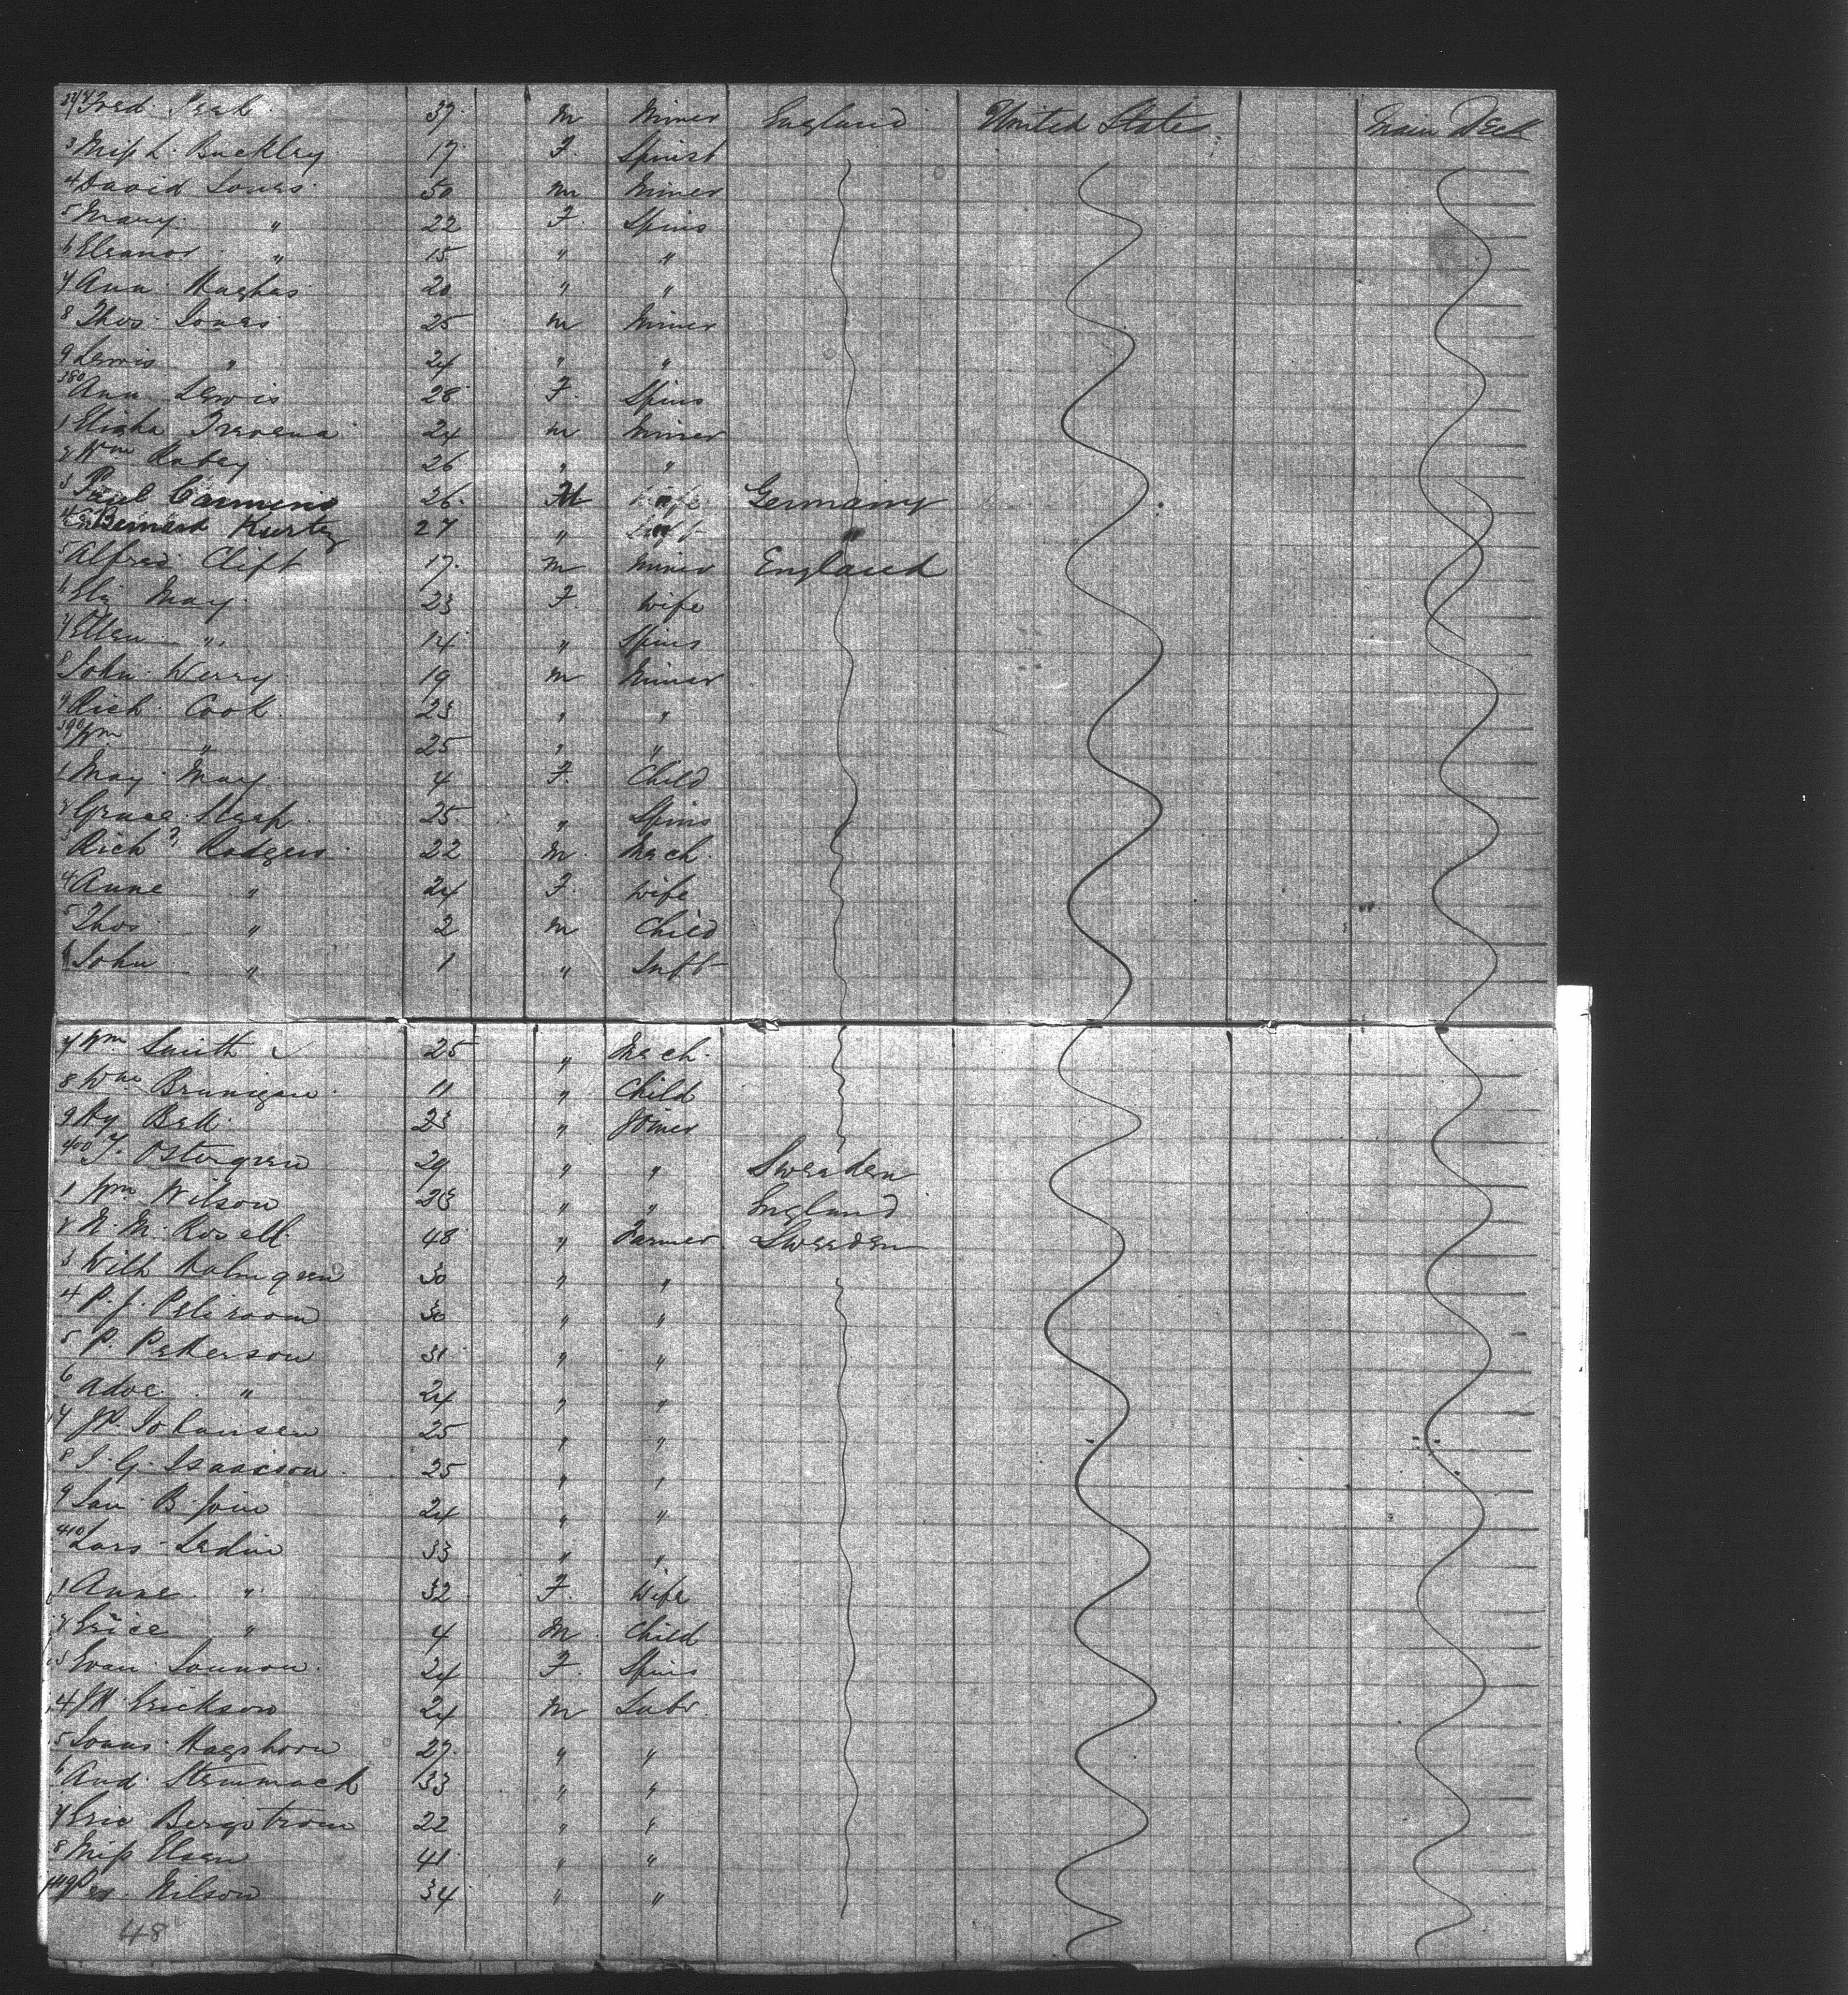 Fred 37 m Miner England United States Main Deck
3 Miss L. Buckley 17 F. Spinst
4 David Jones 50 m Miner
5 Mary " 22 F. Spins
6 Eleanor " 15 " "
7 Ann Hughes 20 " "
8 Thos Jones 25 m Miner
9 Lewis " 24 " "
380 Ann Lewis 28 F. Spins
1 Elisha Trevena 24 m Miner
2 Wm Robey 26 " "
3 Paul 26 M Germany
4 Bernard Kurtz 27 " "
5 Alfred Clift 17 m Miner England
6 Elz May 23 F. Wife
7 Ellen " 14 " Spins
8 John Werry 19 m Miner
9 Rich Cook 23 " "
390 Wm " 25 " "
1 May May 4 F. Child
2 Grace 25 " Spins
3 Richd Rodgers 22 m. Mech.
4 Anne " 24 F. Wife
5 Thos " 2 m Child
6 John " 1 " Inft
7 Wm Smith 25 " Mech.
8 Wm Branigan 11 " Child
9 Hy Bell 23 " Joiner
400 F. Ostergren 29 " " Sweeden
1 Wm Wilson 28 " " England
2 N. M. Rosell 48 " Farmer Sweeden
3 Wilh Holmgren 30 " "
4 P. J. 30 " "
5 P. Petterson 31 " "
6 Adoe " 24 " "
7 JP. Johansen 25 " "
8 J. G. Isaacson 25 " "
9 Jan B 24 " "
410 Lars Ledin 33 " "
1 Anne " 32 F. Wife
2 " 4 M Child
3 Evan 24 F. Spins
4 Erickson 24 m Labr.
5 Jonas Hagshorn 27 " "
6 And. Stemmack 33 " "
7 Eric Bergstrom 22 " "
8 Elsen 41 " "
419 Nilson 34 " "
48